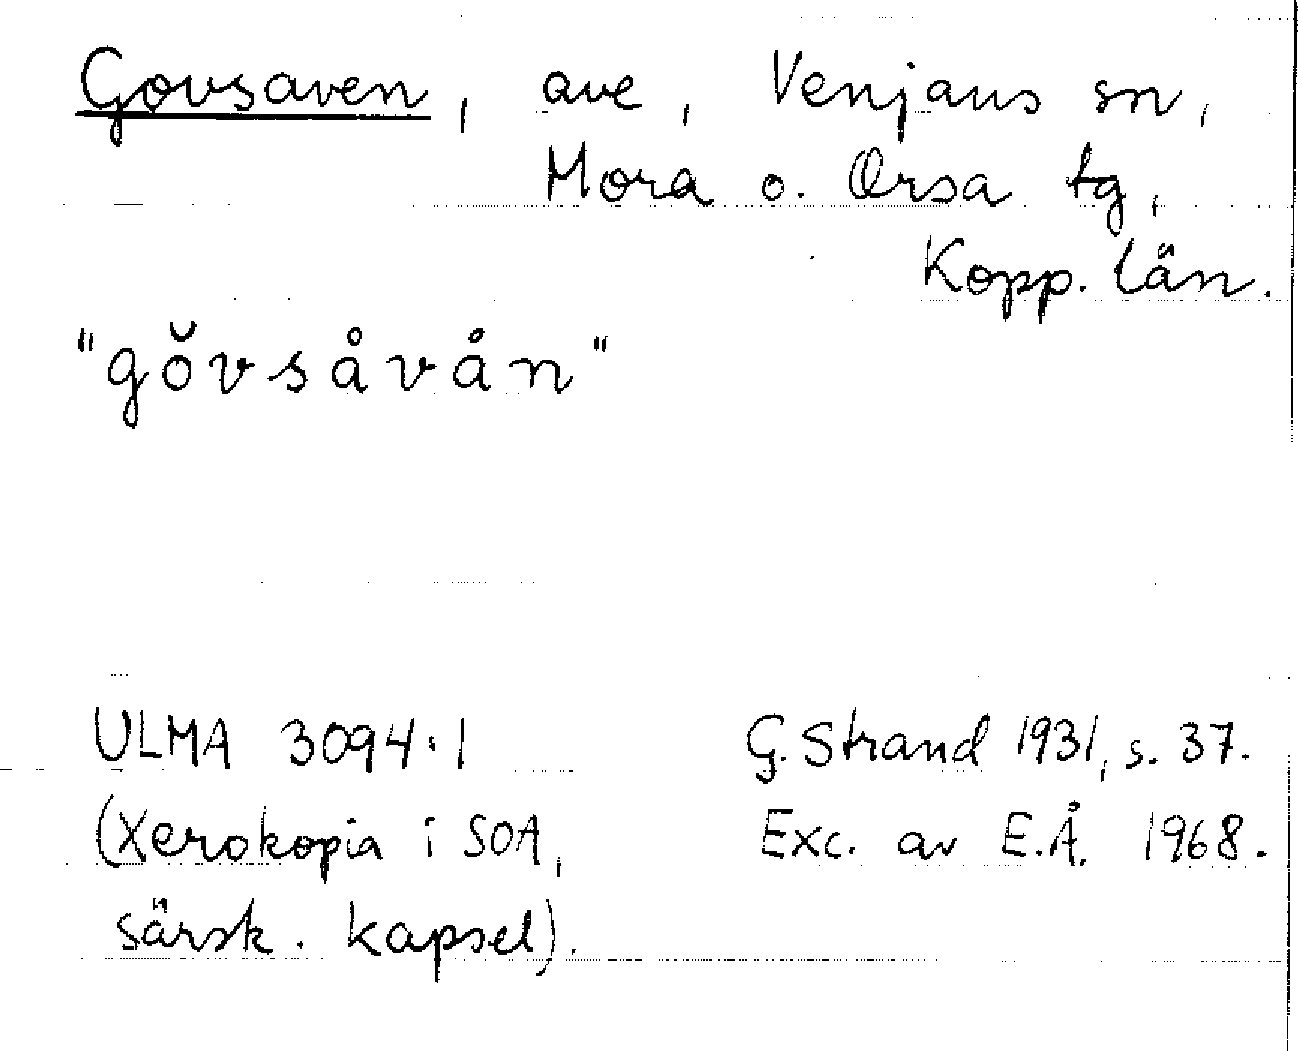 Govsaven, ave, Venjans sn,
Mora o. Orsa tg,
Kopp. län.
"gŏvsåvån"
ULMA 3094:1 G. Strand 1931, s. 37.
(Xerokopia i SOA, Exc. av E.Å. 1968.
särsk. kapsel).